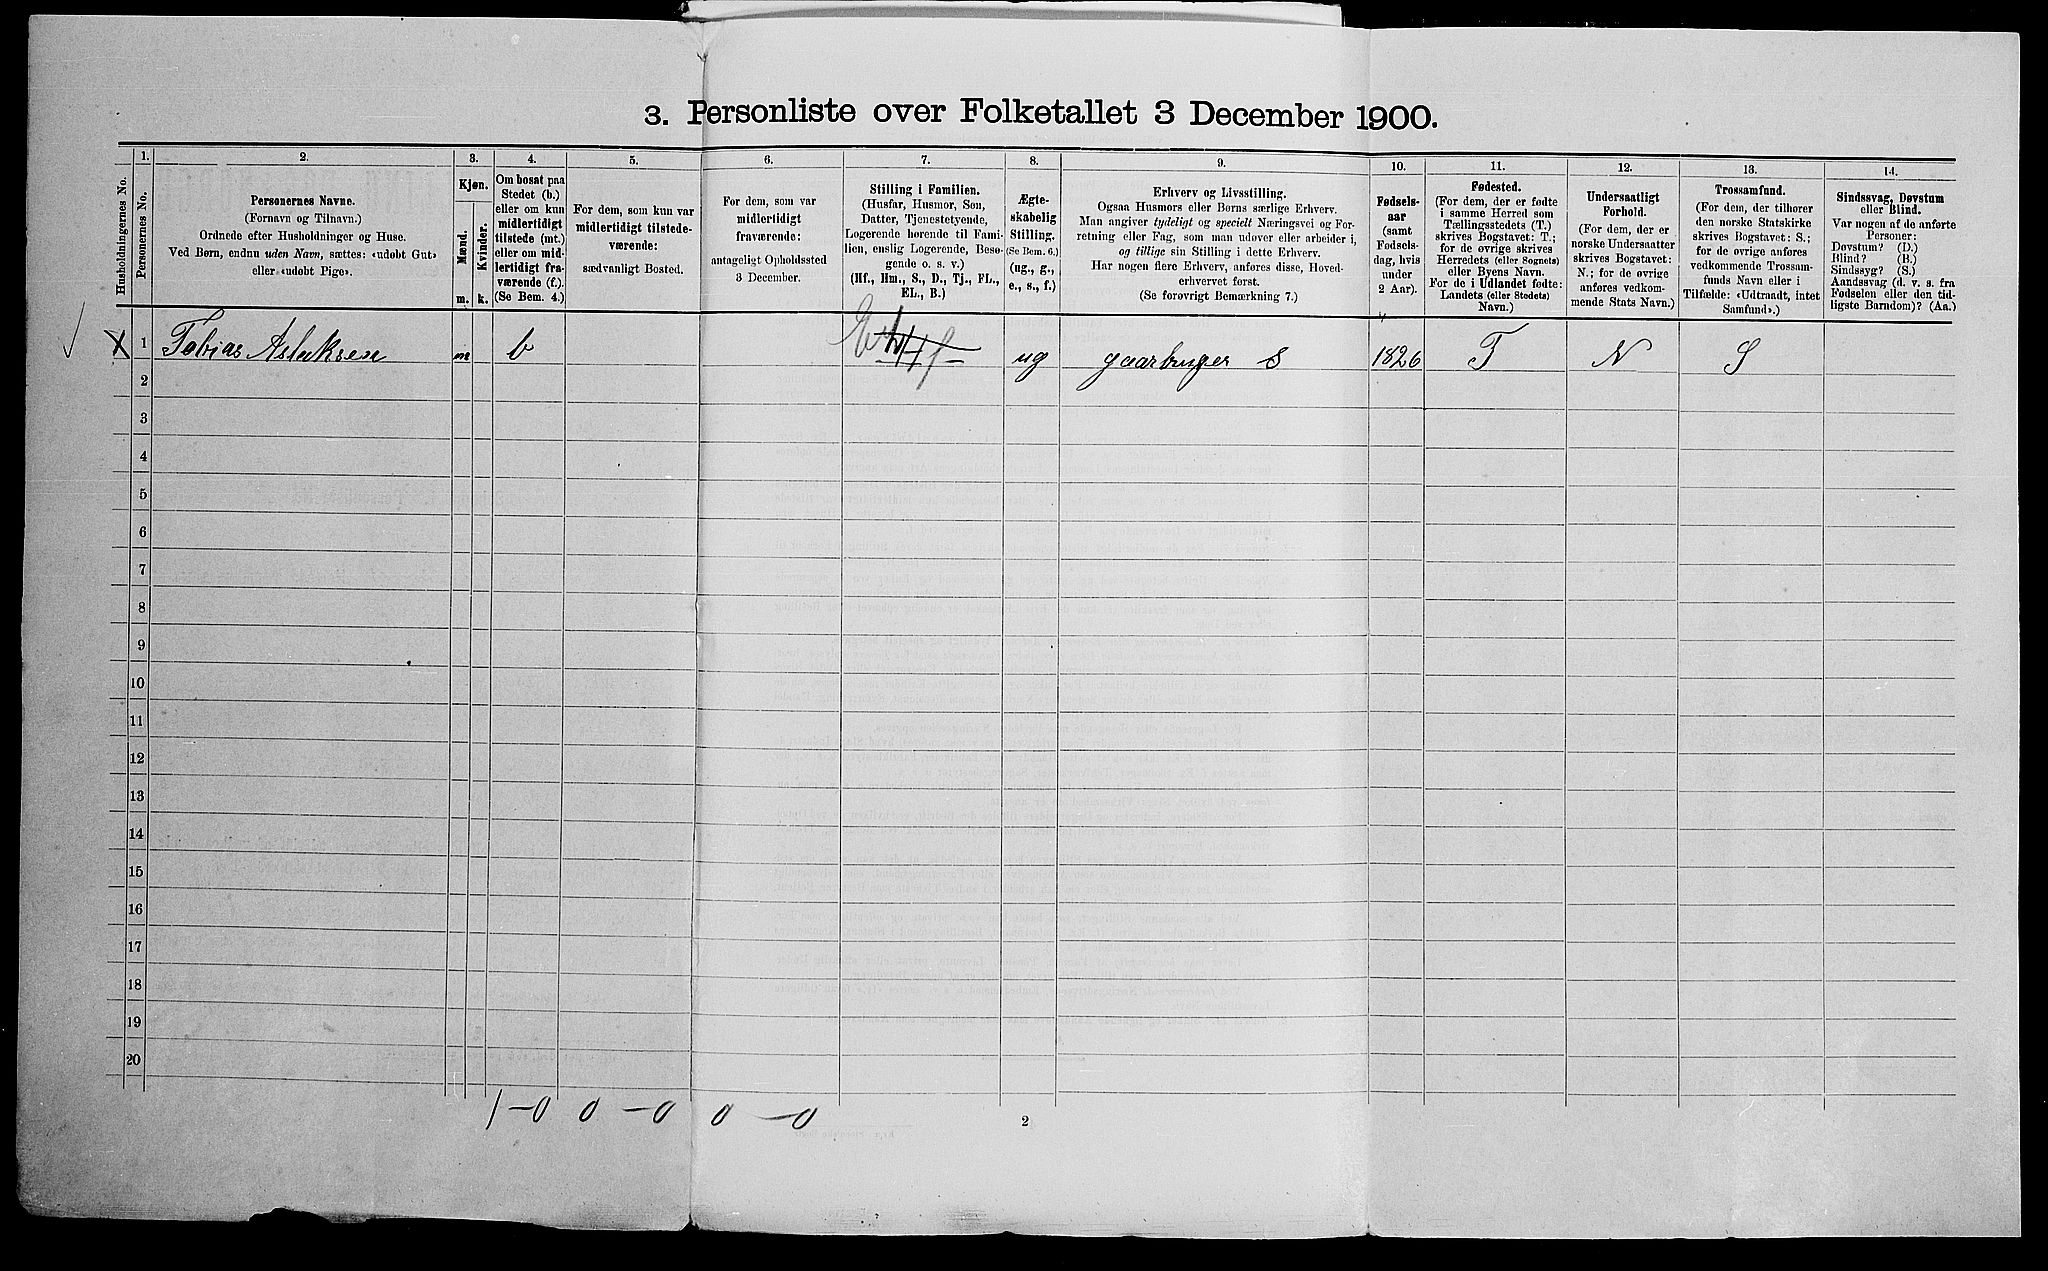 3. Personliste over Folketallet 3 December 1900.
Husholdningernes No.
1.
Personernes No.
2.
Personernes Navne.
(Fornavn og Tilnavn.)
Ordnede efter Husholdninger og Huse.
Ved Børn, endnu uden Navn, sættes: «udøbt Gut»
eller «udøbt Pige».
3.
Kjøn.
Mænd.
Kvinder.
m. k.
4.
Om bosat paa
Stedet (b.)
eller om kun
midlertidigt
tilstede (mt.)
eller om mid-
lertidigt fra-
værende (f.).
(Se Bem. 4.)
5.
For dem, som kun var
midlertidigt tilstede-
værende:
sædvanligt Bosted.
6.
For dem, som var
midlertidigt
fraværende:
antageligt Opholdssted
3 December.
7.
Stilling i Familien.
(Husfar, Husmor, Søn,
Datter, Tjenestetyende,
Logerende hørende til Fami-
lien, enslig Logerende, Besø-
gende o. s. v.)
(Hf., Hm., S., D., Tj., FL.,
EL., B.)
8.
Ægte-
skabelig
Stilling.
(Se Bem. 6.)
(ug., g.,
e., s., f.)
9.
Erhverv og Livsstilling.
Ogsaa Husmors eller Børns særlige Erhverv.
Man angiver tydeligt og specielt Næringsvei og For-
retning eller Fag, som man udøver eller arbeider i,
og tillige sin Stilling i dette Erhverv.
Har nogen flere Erhverv, anføres disse, Hoved-
erhvervet først.
(Se forøvrigt Bemærkning 7.)
10.
Fødsels-
aar
(samt
Fødsels-
dag, hvis
under
2 Aar).
11.
Fødested.
(For dem, der er fødte
i samme Herred som
Tællingsstedets (T.)
skrives Bogstavet: T.;
for de øvrige skrives
Herredets (eller Sognets)
eller Byens Navn.
For de i Udlandet fødte:
Landets (eller Stedets)
Navn.)
12.
Undersaatligt
Forhold.
(For dem, der er
norske Undersaatter
skrives Bogstavet:
N.; for de øvrige
anføres vedkom-
mende Stats Navn.)
13.
Trossamfund.
(For dem, der tilhører
den norske Statskirke
skrives Bogstavet: S.;
for de øvrige anføres
vedkommende Trossam-
funds Navn eller i
Tilfælde: «Udtraadt, intet
Samfund».)
14.
Sindssvag, Døvstum
eller Blind.
Var nogen af de anførte
Personer:
Døvstum? (D.)
Blind? (B.)
Sindssyg? (S.)
Aandssvag (d. v. s. fra
Fødselen eller den tid-
ligste Barndom)? (Aa.)
X 1 Tobias Aslaksen m b ug gaarbruger S 1826 T N S
2
3
4
5
6
7
8
9
10
11
12
13
14
15
16
17
18
19
20
1-0 0-0 0-0
2